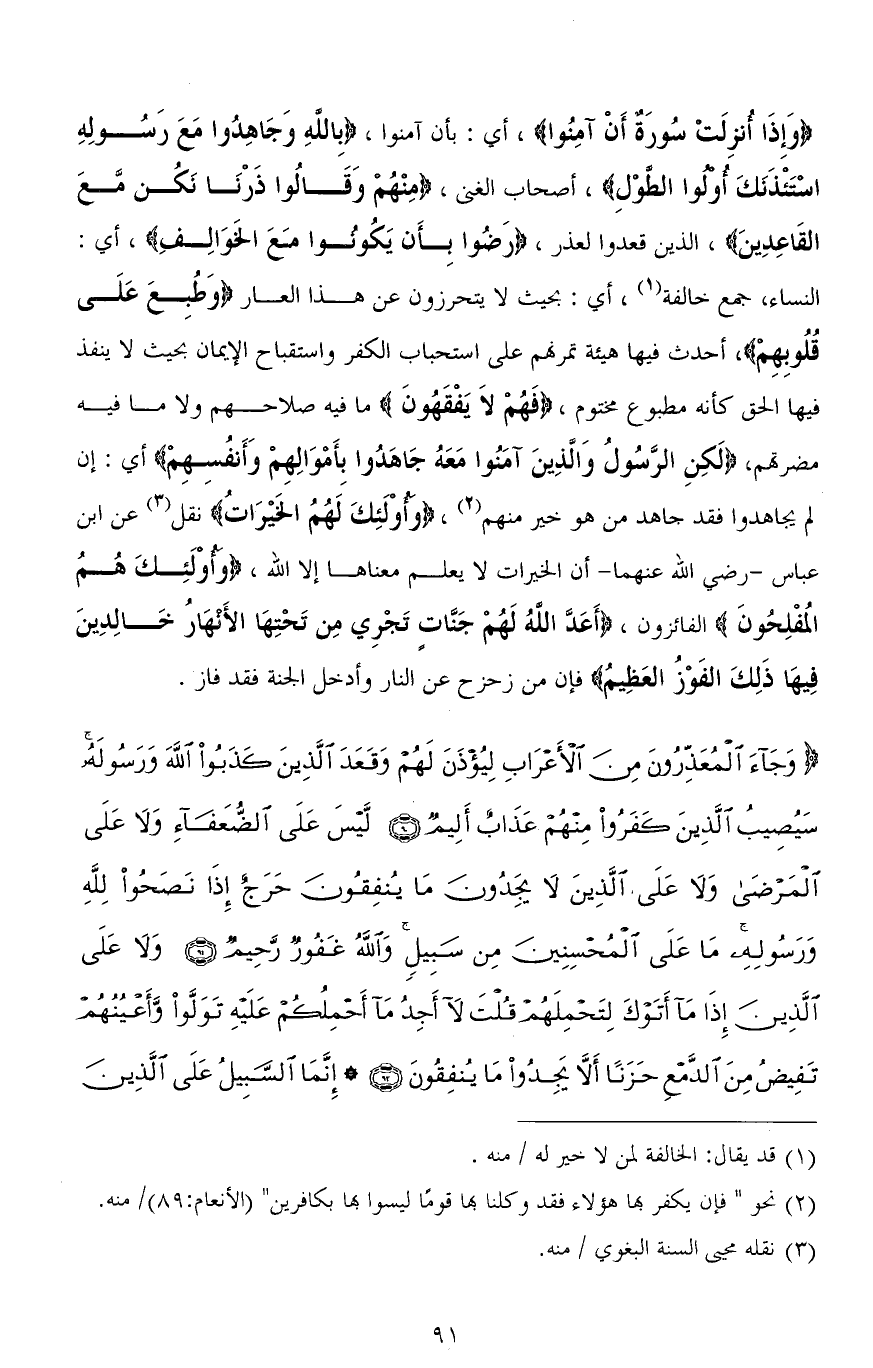 ﴿وَإِذَا أُنزِلَتْ سُورَةٌ أَنْ آمِنُوا﴾ ، أي : بأن آمنوا ، ﴿بِاللَّهِ وَجَاهِدُوا مَعَ رَسُولِهِ
اسْتَئْذَنَكَ أُوْلُوا الطَّوْلِ﴾ ، أصحاب الغنى ، ﴿مِنْهُمْ وَقَالُوا ذَرْنَا نَكُن مَّعَ
القَاعِدِينَ﴾ ، الذين قعدوا لعذر ، ﴿رَضُوا بِأَن يَكُونُوا مَعَ الخَوَالِفِ﴾ ، أي :
النساء، جمع خالفة(١) ، أي : بحيث لا يتحرزون عن هذا العار ﴿وَطُبِعَ عَلَى
قُلُوبِهِمْ﴾، أحدث فيها هيئة تمرنهم على استحباب الكفر واستقباح الإيمان بحيث لا ينفذ
فيها الحق كأنه مطبوع مختوم ، ﴿فَهُمْ لاَ يَفْقَهُونَ ﴾ ما فيه صلاحهم ولا ما فيه
مضرتهم، ﴿لَكِنِ الرَّسُولُ وَالَّذِينَ آمَنُوا مَعَهُ جَاهَدُوا بِأَمْوَالِهِمْ وَأَنفُسِهِمْ﴾ أي : إن
لم يجاهدوا فقد جاهد من هو خير منهم(٢) ، ﴿وَأُوْلَئِكَ لَهُمُ الخَيْرَاتُ﴾ نقل(٣) عن ابن
عباس -رضي الله عنهما- أن الخيرات لا يعلم معناها إلا الله ، ﴿وَأُوْلَئِكَ هُمُ
المُفْلِحُونَ ﴾ الفائزون ، ﴿أَعَدَّ اللَّهُ لَهُمْ جَنَّاتٍ تَجْرِي مِن تَحْتِهَا الأَنْهَارُ خَالِدِينَ
فِيهَا ذَلِكَ الفَوْزُ العَظِيمُ﴾ فإن من زحزح عن النار وأدخل الجنة فقد فاز .
﴿ وَجَآءَ ٱلْمُعَذِّرُونَ مِنَ ٱلْأَعْرَابِ لِيُؤْذَنَ لَهُمْ وَقَعَدَ ٱلَّذِينَ كَذَبُوا۟ ٱللَّهَ وَرَسُولَهُۥ ۚ
سَيُصِيبُ ٱلَّذِينَ كَفَرُوا۟ مِنْهُمْ عَذَابٌ أَلِيمٌ ۝٩٠ لَّيْسَ عَلَى ٱلضُّعَفَآءِ وَلَا عَلَى
ٱلْمَرْضَىٰ وَلَا عَلَى ٱلَّذِينَ لَا يَجِدُونَ مَا يُنفِقُونَ حَرَجٌ إِذَا نَصَحُوا۟ لِلَّهِ
وَرَسُولِهِۦ ۚ مَا عَلَى ٱلْمُحْسِنِينَ مِن سَبِيلٍ ۚ وَٱللَّهُ غَفُورٌ رَّحِيمٌ ۝٩١ وَلَا عَلَى
ٱلَّذِينَ إِذَا مَآ أَتَوْكَ لِتَحْمِلَهُمْ قُلْتَ لَآ أَجِدُ مَآ أَحْمِلُكُمْ عَلَيْهِ تَوَلَّوا۟ وَّأَعْيُنُهُمْ
تَفِيضُ مِنَ ٱلدَّمْعِ حَزَنًا أَلَّا يَجِدُوا۟ مَا يُنفِقُونَ ۝٩٢ * إِنَّمَا ٱلسَّبِيلُ عَلَى ٱلَّذِينَ
(١) قد يقال: الخالفة لمن لا خير له / منه .
(٢) نحو " فإن يكفر بها هؤلاء فقد وكلنا بها قومًا ليسوا بها بكافرين" (الأنعام:٨٩)/ منه.
(٣) نقله محيى السنة البغوي / منه.
٩١